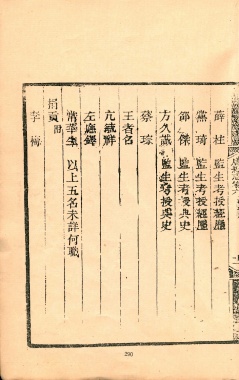 薛柱 監生考授經歷
黨琦 監生考授經歷
邵傑 監生考授典史
方久誠 監生考授典史
蔡琮
王者名
亢毓祥
左應鐸
常華生 以上五名未詳何職
捐貢附
李梅
290